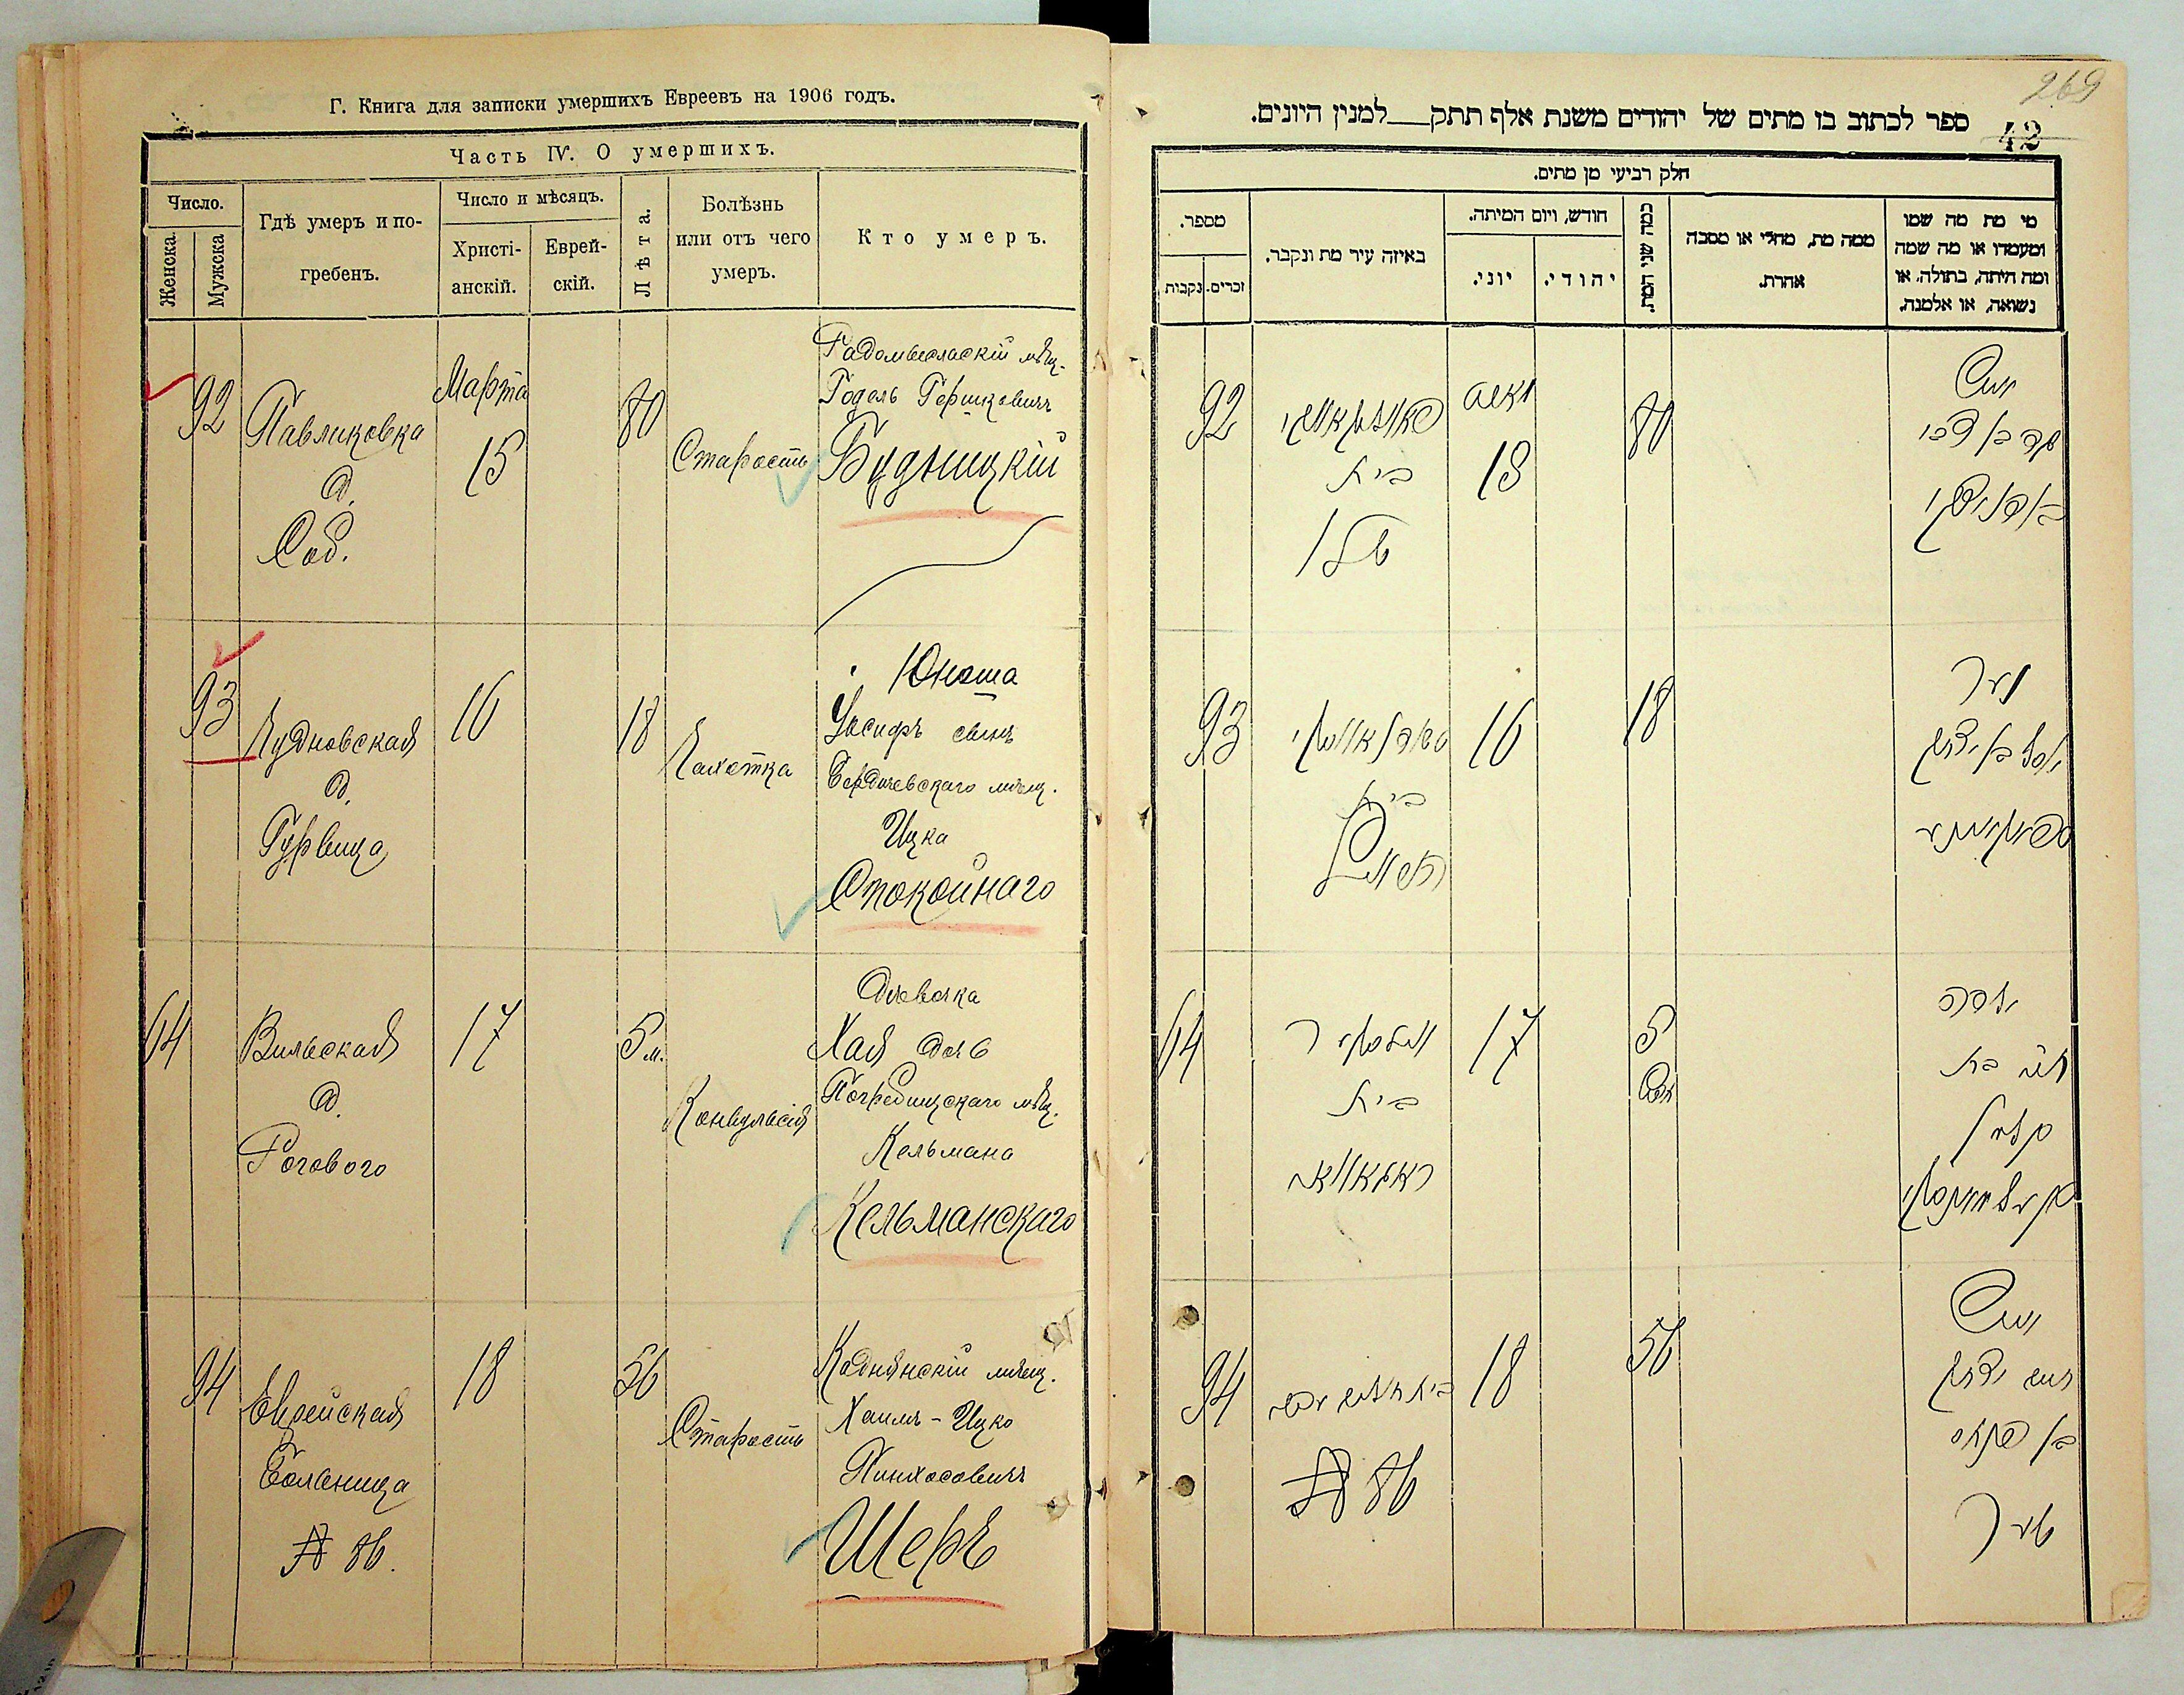 Г. Книга для записки умершихъ Евреевъ на 1906 годъ.
Часть IV. О умершихъ.
Число.
Женска
Мужска
Гдѣ умеръ и по-
гребенъ.
Число и мѣсяцъ.
Христі-
анскій.
Еврей-
скій.
Лѣта.
Болѣзнь
или отъ чего
умеръ.
Кто умеръ.
92
Павликовка
д.
Соб.
Марта
15
80
Старость
Радомысльскій мѣщ.
Годель Гершковичъ
Будницкій
93
Чудновская
д.
Гурвица
16
18
Чахотка
Юноша
Іосифъ сынъ
Бердичевскаго мѣщ.
Ицка
Спокойнаго
64
Вильская
д.
Рогового
17
5 м.
Конвульсія
Дѣвочка
Хая дочь
Погребищскаго мѣщ.
Кельмана
Кельманскаго
94
Еврейская
Больница
№ 86.
18
56
Старость
Коднянскій мѣщ.
Хаимъ-Ицко
Пинхосовичъ
Шеръ
269
42
ספר לכתוב בו מתים של יהודים משנת אלף תתק__למנין היונים.
חלק רביעי מן מתים.
מספר.
זכרים.
נקבות
באיזה עיר מת ונקבר.
חודש, ויום המיתה.
יוני.
יהודי.
כמה שני המת.
ממה מת, מחלי או מסבה
אחרת.
מי מת מה שמו
ומעמדו או מה שמה
ומה היתה, בתולה, או
נשואה, או אלמנה.
92
בית
80
איש
93
16
בית
18
נער
64
17
בית
5
ילדה
חי' בת
94
18
№ 86
56
איש
חיים יצחק
בן פנחס
שער